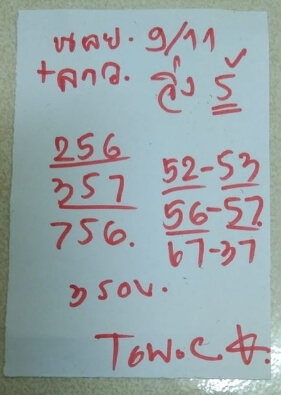 หลาย. 9/11
+ลาว. วิ่ง 5
256
357
756.
52-53
56-57
67-37
3 รอบ.